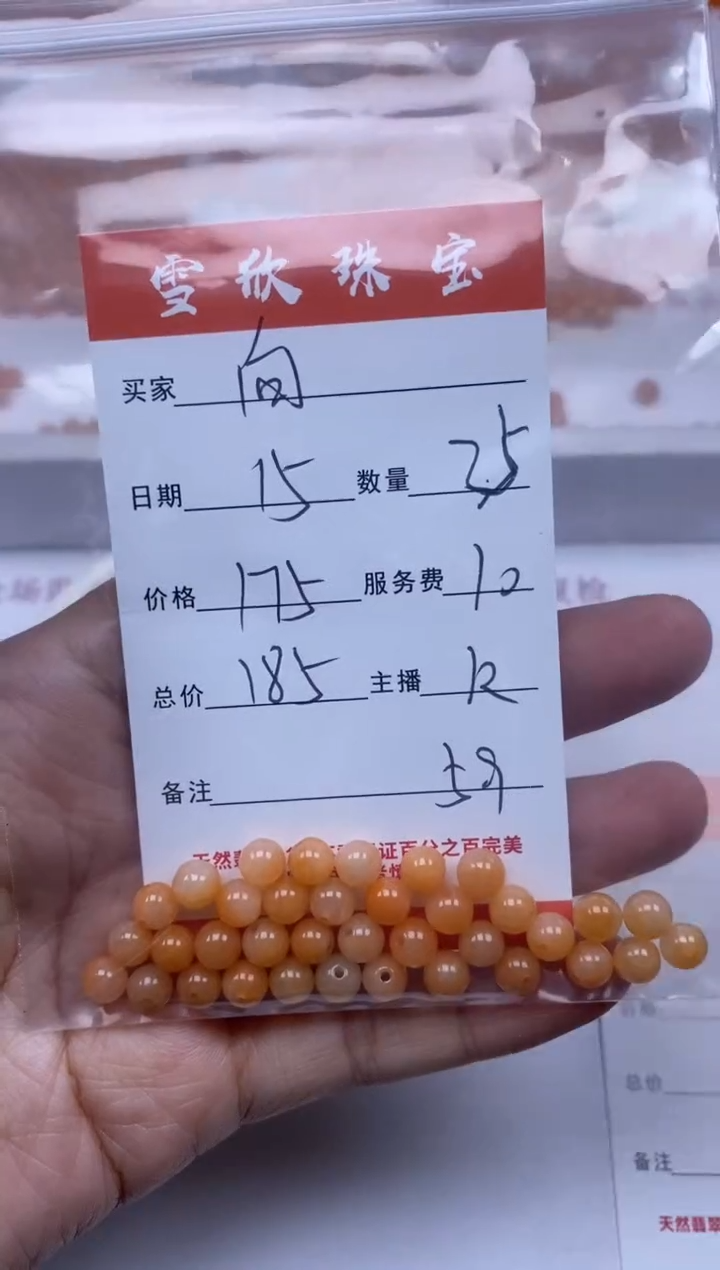 雪欣珠宝
买家 向
日期 15 数量 25
价格 175 服务费 10
总价 185 主播 K
备注
天然翡 证百分之百完美
总价
备注
天然翡翠